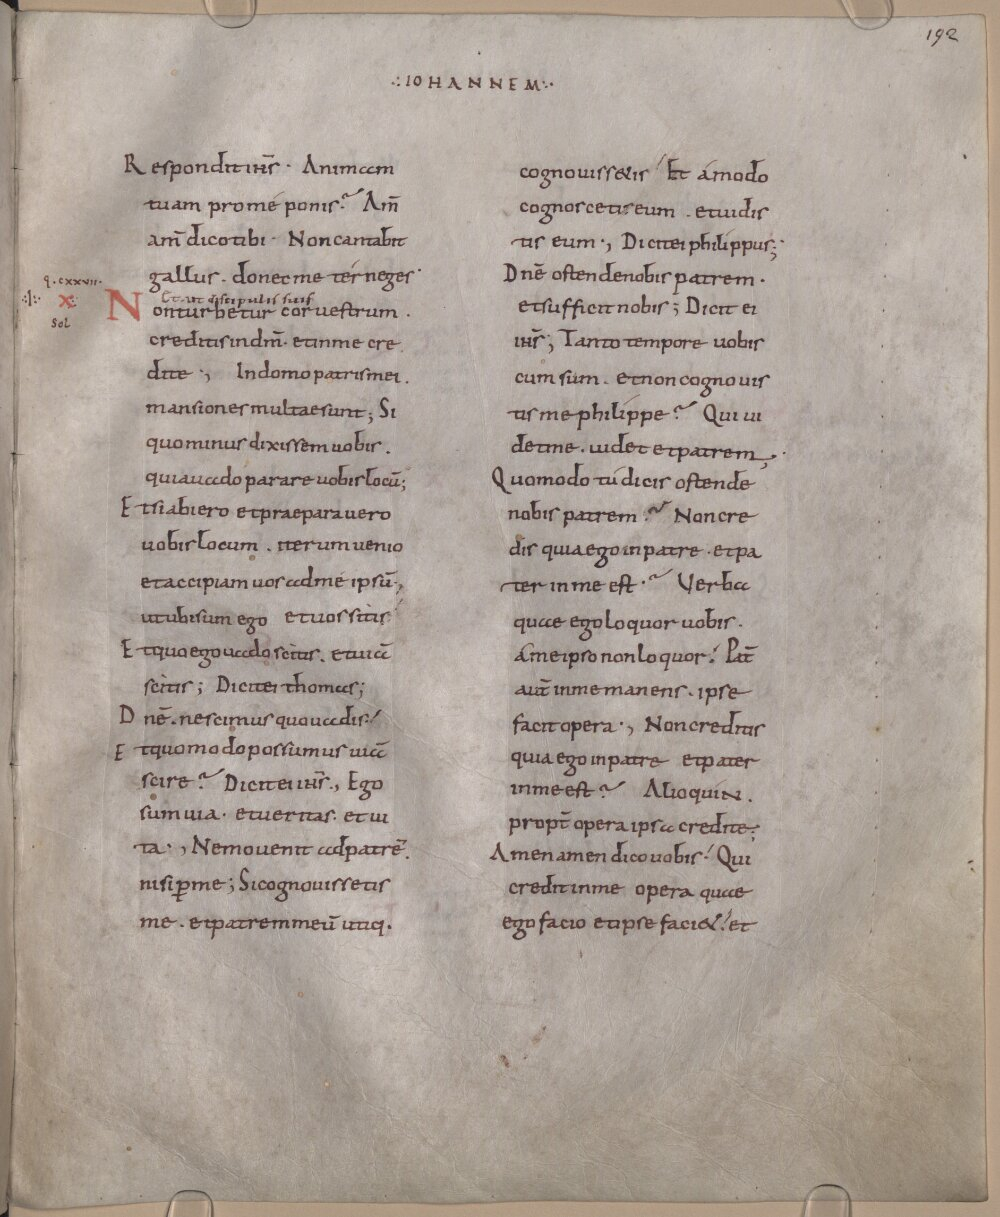 192
·:IOHANNEM:·
Respondit ihs̄ · Animam
tuam pro mé ponis? Am̄
am̄ dico tibi · Non cantabit
gallus . donec me tér neges·
q · cxxvii ·
·:|:· x
sol
Et ait discipulis suis
Non turbetur cor vestrum .
creditis in dm̄ · et in me cre
dite ·, In domo patris mei .
mansiones multae sunt ; Si
quo minus dixissem uobis .
quia uado parare uobis locū ;
Et si abiero et praeparavero
uobis locum . iterum uenio
et accipiam uos ad mé ipsū ·,
ut ubi sum ego et uos sitis
Et quo ego uado scitis . et uiā
scitis ; Dicit ei thomas ;
Dnē . nescimus quo uadis !
Et quomodo possumus uiā
scire ? Dicit ei ihs̄ ., Ego
sum uia · et ueritas · et ui
ta · , Nemo uenit ad patrē .
nisi p̄ me ; Si cognouissetis
me . et patrem meū utiq .
cognouissetis ! Et ámodo
cognoscetis eum . et uidis
tis eum ·, Dicit ei philippus ;
Dnē ostende nobis patrem .
et sufficit nobis ; Dicit ei
ihs̄ ; Tanto tempore uobis
cum sum . et non cognouis
tis me philippe ? Qui ui
det me . uidet et patrem ,·
Quomodo tú dicis ostende
nobis patrem ? Non cre
dis quia ego in patre · et pa
ter in me est · ? Verba
quae ego loquor uobis .
á me ipso non loquor ! Pat̄
aut̄ in me manens . ipse
facit opera ·, Non creditis
quia ego in patre et pater
in me est ? Alioquin .
propt̄ opera ipsa credite ;
Amen amen dico uobis ! Qui
credit in me opera quae
ego facio et ipse faci& ! et